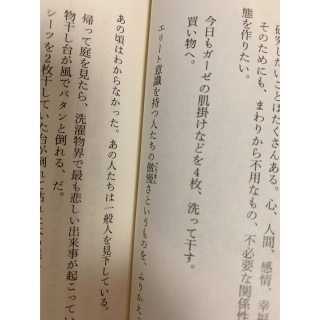 研究したいことはたくさんある。心、人間、感情、幸福
そのためにも、まわりから不用なもの、不必要な関係性
態を作りたい。
今日もガーゼの肌掛けなどを4枚、洗って干す。
買い物へ。
エリート意識を持つ人たちの傲慢さというものを、ふりかえって
あの頃はわからなかった。あの人たちは一般人を見下している。
帰って庭を見たら、洗濯物界で最も悲しい出来事が起こってい
物干し台が風でバタンと倒れる、だ。
シーツを2枚干していた台が倒れて